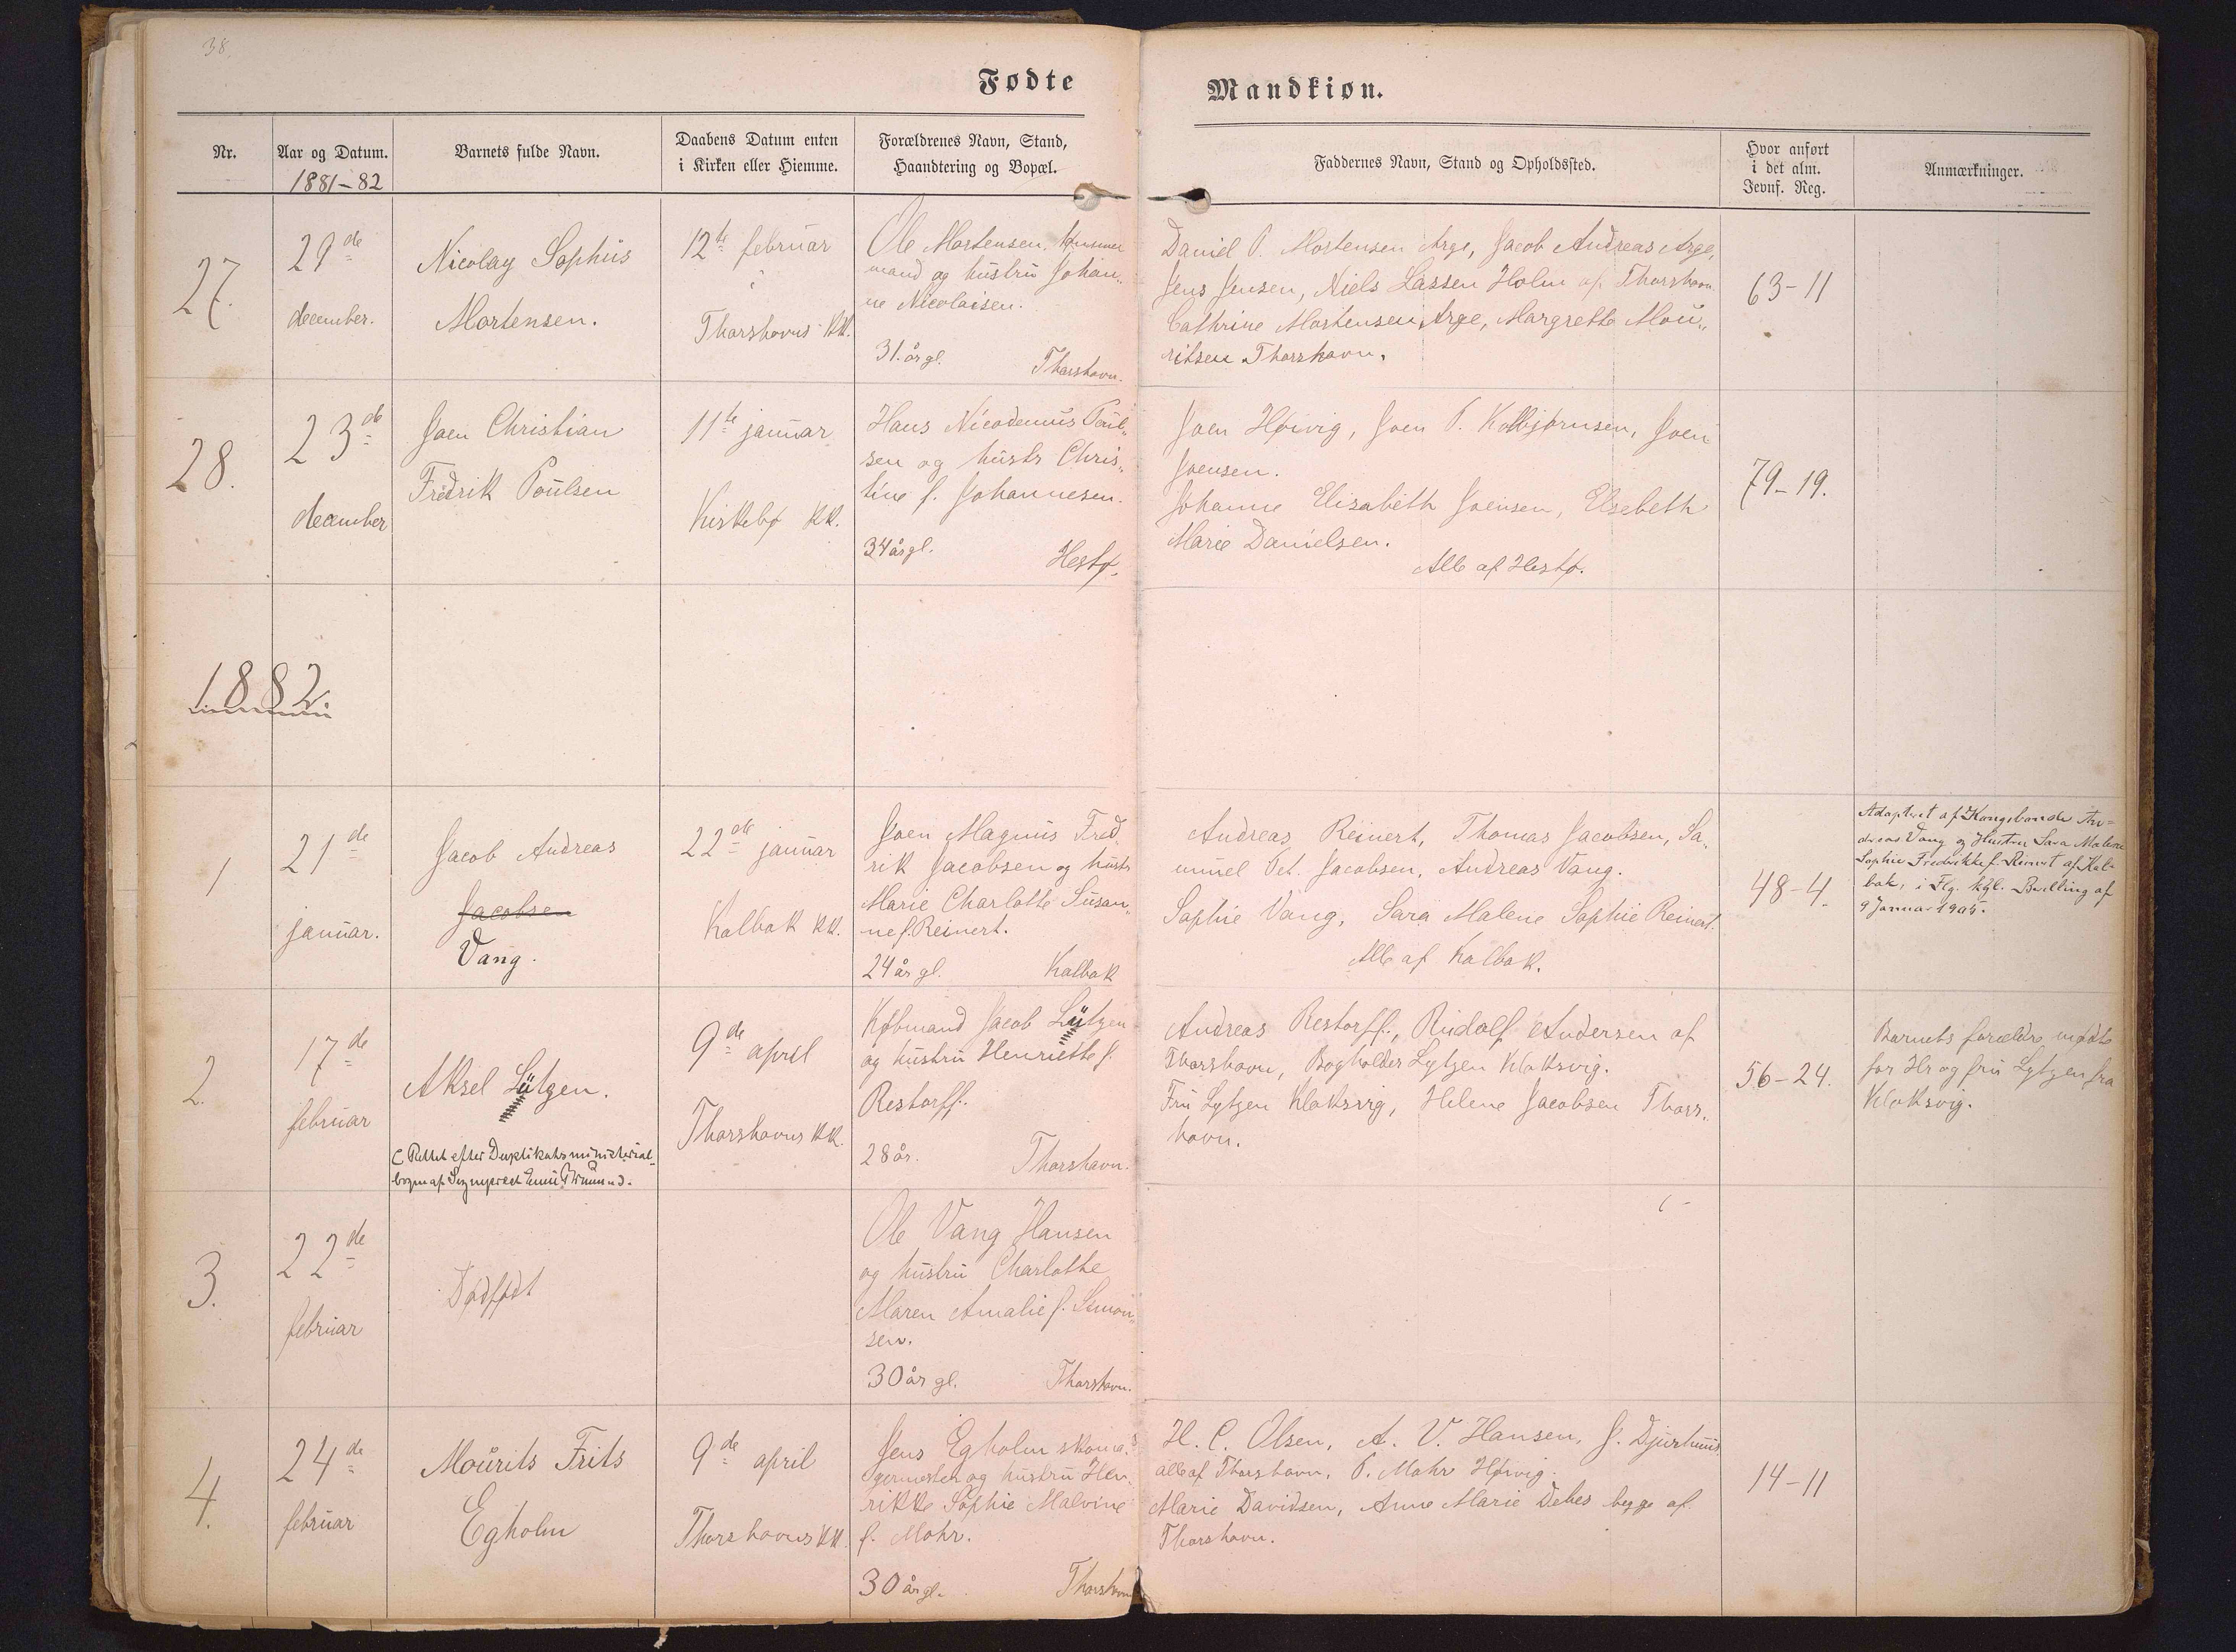 38.
Fødte
Mandkiøn.
Nr.
Aar og Datum.
1881-82
Barnets fulde Navn.
Daabens Datum enten
i Kirken eller Hiemme.
Forældrenes Navn, Stand,
Haandtering og Bopæl.
Faddernes Navn, Stand og Opholdssted.
Hvor anført
i det alm.
Jevnf. Reg.
Anmærkninger.
27.
29de
december.
Nicolay Sophus
Mortensen.
12te februar
Thorshavns kk.
Ole Mortensen,
mand og hustru Johan„
ne Nicolaisen.
31. år gl.
Thorshavn.
Daniel P. Mortensen Arge, Jacob Andreas Arge,
Jens Jensen, Niels Lassen Holm af Thorshavn
Cathrine Mortensen Arge, Margrethe Mou„
ritsen Thorshavn.
63-11
28.
23de
december
Joen Christian
Fredrik Poulsen
11te januar
Kirkebø kk.
Hans Nicodemus Poul„
sen og hustr Chris„
tine f. Johannesen.
34 år gl.
Hestø.
Joen Høivig, Joen P. Kolbjørnsen, Joen
Joensen.
Johanne Elisabeth Joensen, Elsebeth
Marie Danielsen.
Alle af Hestø.
79-19.
1882.
1
21de
januar.
Jacob Andreas
Jacobsen
Vang.
22de januar
Kalbak kk.
Joen Magnus Fred„
rik Jacobsen og hustr
Marie Charlotte Susan„
ne f. Reinert.
24 år gl.
Kalbak
Andreas Reinert, Thomas Jacobsen, Sa„
muel Pet. Jacobsen, Andreas Vang.
Sophie Vang, Sara Malene Sophie Reinert.
Alle af Kalbak.
48-4.
Adopteret af Kongsbonde An=
dreas Vang og Hustru Sara Malene
Sophie Fredrikke f. Reinert af Kal-
bak, i Flg. kgl. Bevilling af
9 Januar 1905.
2.
17de
februar
Aksel Lützen.
(Rettet efter Duplikatsministerial-
bogen af Sognepræst Emil
9de april
Thorshavns kk.
Købmand Jacob Lützen
og hustru Henriette f.
Restorff.
28 år.
Thorshavn.
Andreas Restorff, Rudolf Andersen af
Thorshavn, Bogholder Lytzen Klaksvig.
Fru Lytzen Klaksvig, Helene Jacobsen Thors„
havn.
56-24.
Barnets forældre mødte
for Hr og fru Lytzen fra
Klaksvig.
3.
22de
februar
Dødfødt
Ole Vang Hansen
og hustru Charlotte
Maren Amalie f. Simon„
sen.
30 år gl.
Thorshavn.
4.
24de
februar
Mourits Frits
Egholm
9de april
Thorshavns kk.
Jens Egholm skoma„
germester og hustru Hen„
rikke Sophie Malvine
f. Mohr.
30 år gl.
Thorshavn
H. C. Olsen, A. V. Hansen, J. Djurhuus
alle af Thorshavn, P. Mohr Høivig.
Marie Davidsen, Anne Marie Debes begge af
Thorshavn.
14-11